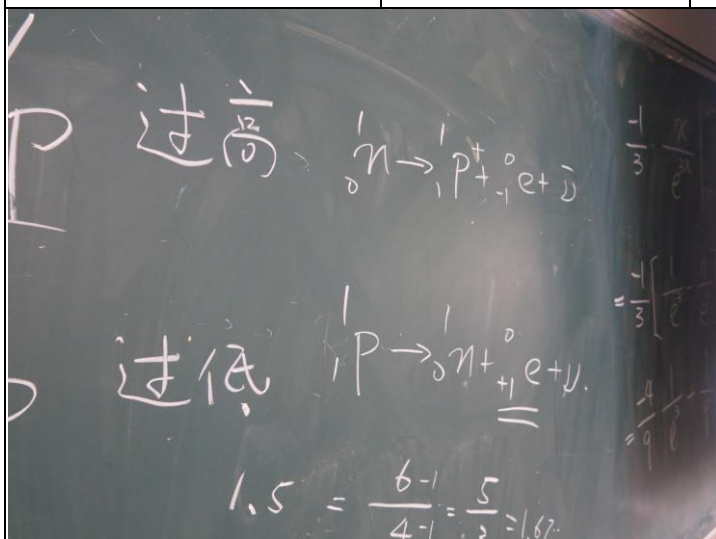 P 过高 ¹₀n → ¹₁P⁺ + ⁰₋₁e + ν̄
过低 ¹₁P → ¹₀n + ⁰₊₁e + ν.
1.5 = (6-1)/(4-1) = 5/3 = 1.67
-1/3
= -1/3 [
= -4/9